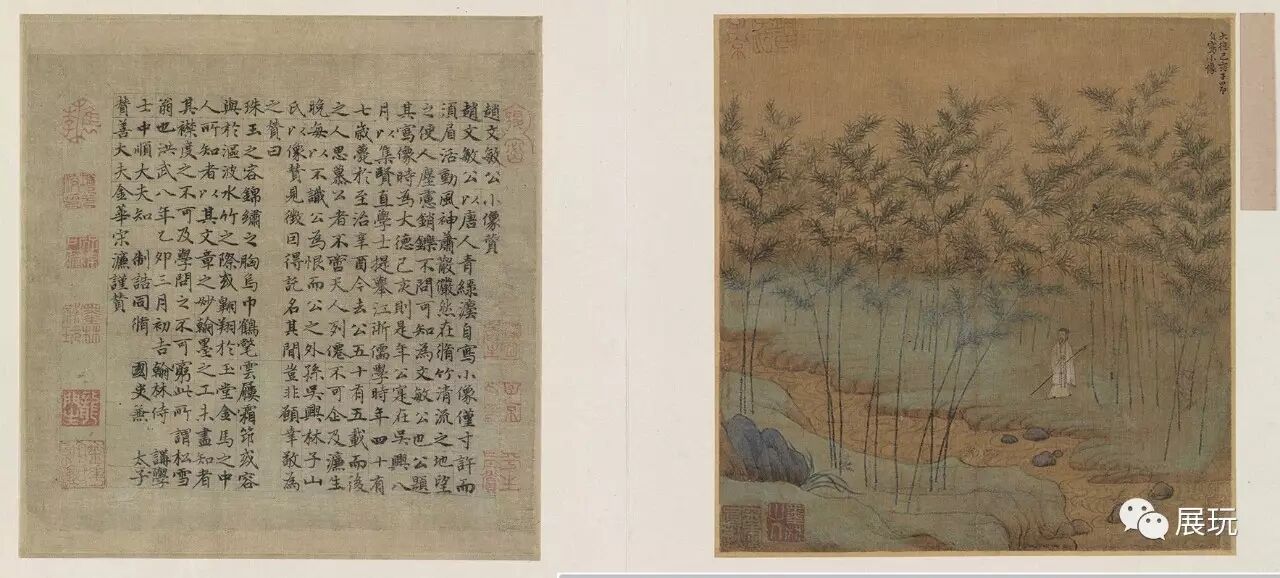 趙文敏公小像贊
趙文敏公以唐人青綠灋自寫小像僅寸許而
須眉活動風神蕭散儼然在脩竹清流之地望
之使人塵慮銷鑠不問可知為文敏公也公題
其寫像時為大德己亥則是年公寔在吳興八
月以集賢直學士提舉江浙儒學時年四十有
七歲薨於至治辛酉今去公五十有五載而後
之人思慕公者不啻天人列僊不可企及濂生
晚每以不識公為恨而公之外孫吳興林子山
氏以像贊見徵因得託名其間豈非願幸敬為
之贊曰
珠玉之容錦繡之胸烏巾鶴氅雲屨霜筇或容
與於漚波水竹之際或翱翔於玉堂金馬之中
人所知者以其文章之妙翰墨之工未盡知者
其襟度之不可及學問之不可窮此所謂松雪
翁也洪武八年乙卯三月初吉翰林侍 講學
士中順大夫知 制誥同脩 國史兼 太子
贊善大夫金華宋濂謹贊
大德己亥子昂
自寫小像
展玩